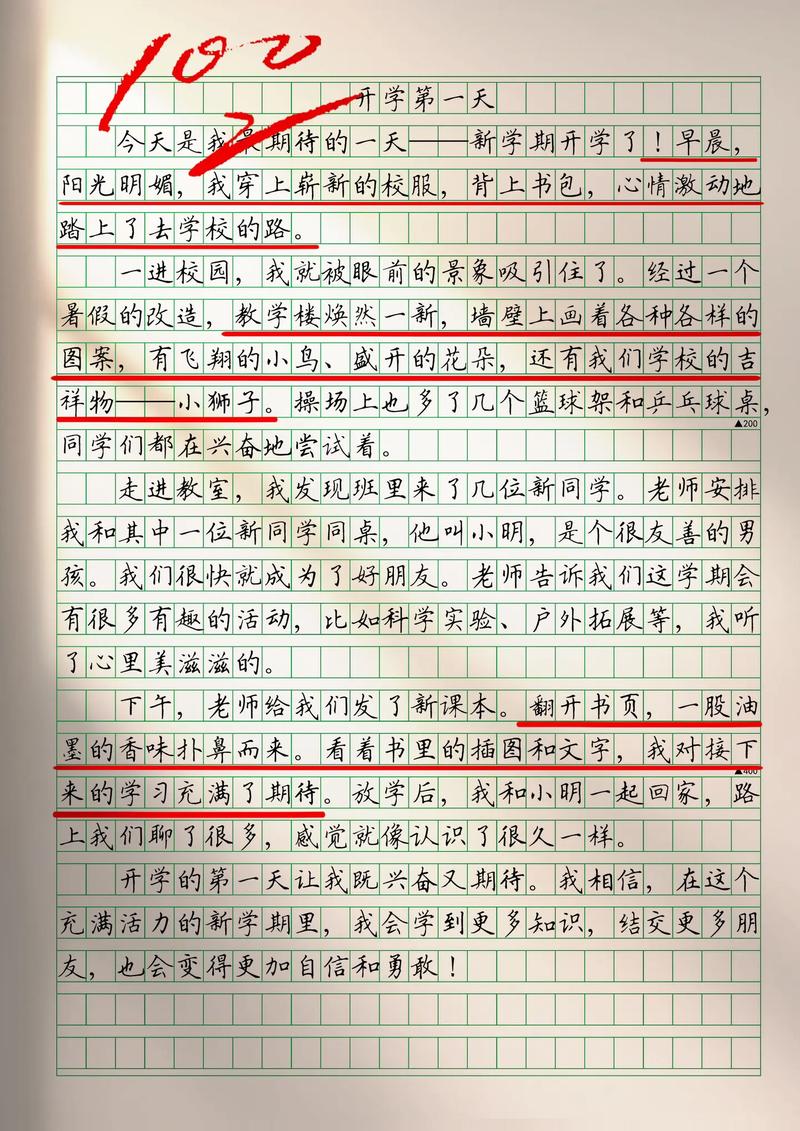 100
开学第一天
今天是我最期待的一天——新学期开学了！早晨，
阳光明媚，我穿上崭新的校服，背上书包，心情激动地
踏上了去学校的路。
一进校园，我就被眼前的景象吸引住了。经过一个
暑假的改造，教学楼焕然一新，墙壁上画着各种各样的
图案，有飞翔的小鸟、盛开的花朵，还有我们学校的吉
祥物——小狮子。操场上也多了几个篮球架和乒乓球桌，
▲200
同学们都在兴奋地尝试着。
走进教室，我发现班里来了几位新同学。老师安排
我和其中一位新同学同桌，他叫小明，是个很友善的男
孩。我们很快就成为了好朋友。老师告诉我们这学期会
有很多有趣的活动，比如科学实验、户外拓展等，我听
了心里美滋滋的。
下午，老师给我们发了新课本。翻开书页，一股油
墨的香味扑鼻而来。看着书里的插图和文字，我对接下
▲400
来的学习充满了期待。放学后，我和小明一起回家，路
上我们聊了很多，感觉就像认识了很久一样。
开学的第一天让我既兴奋又期待。我相信，在这个
充满活力的新学期里，我会学到更多知识，结交更多朋
友，也会变得更加自信和勇敢！